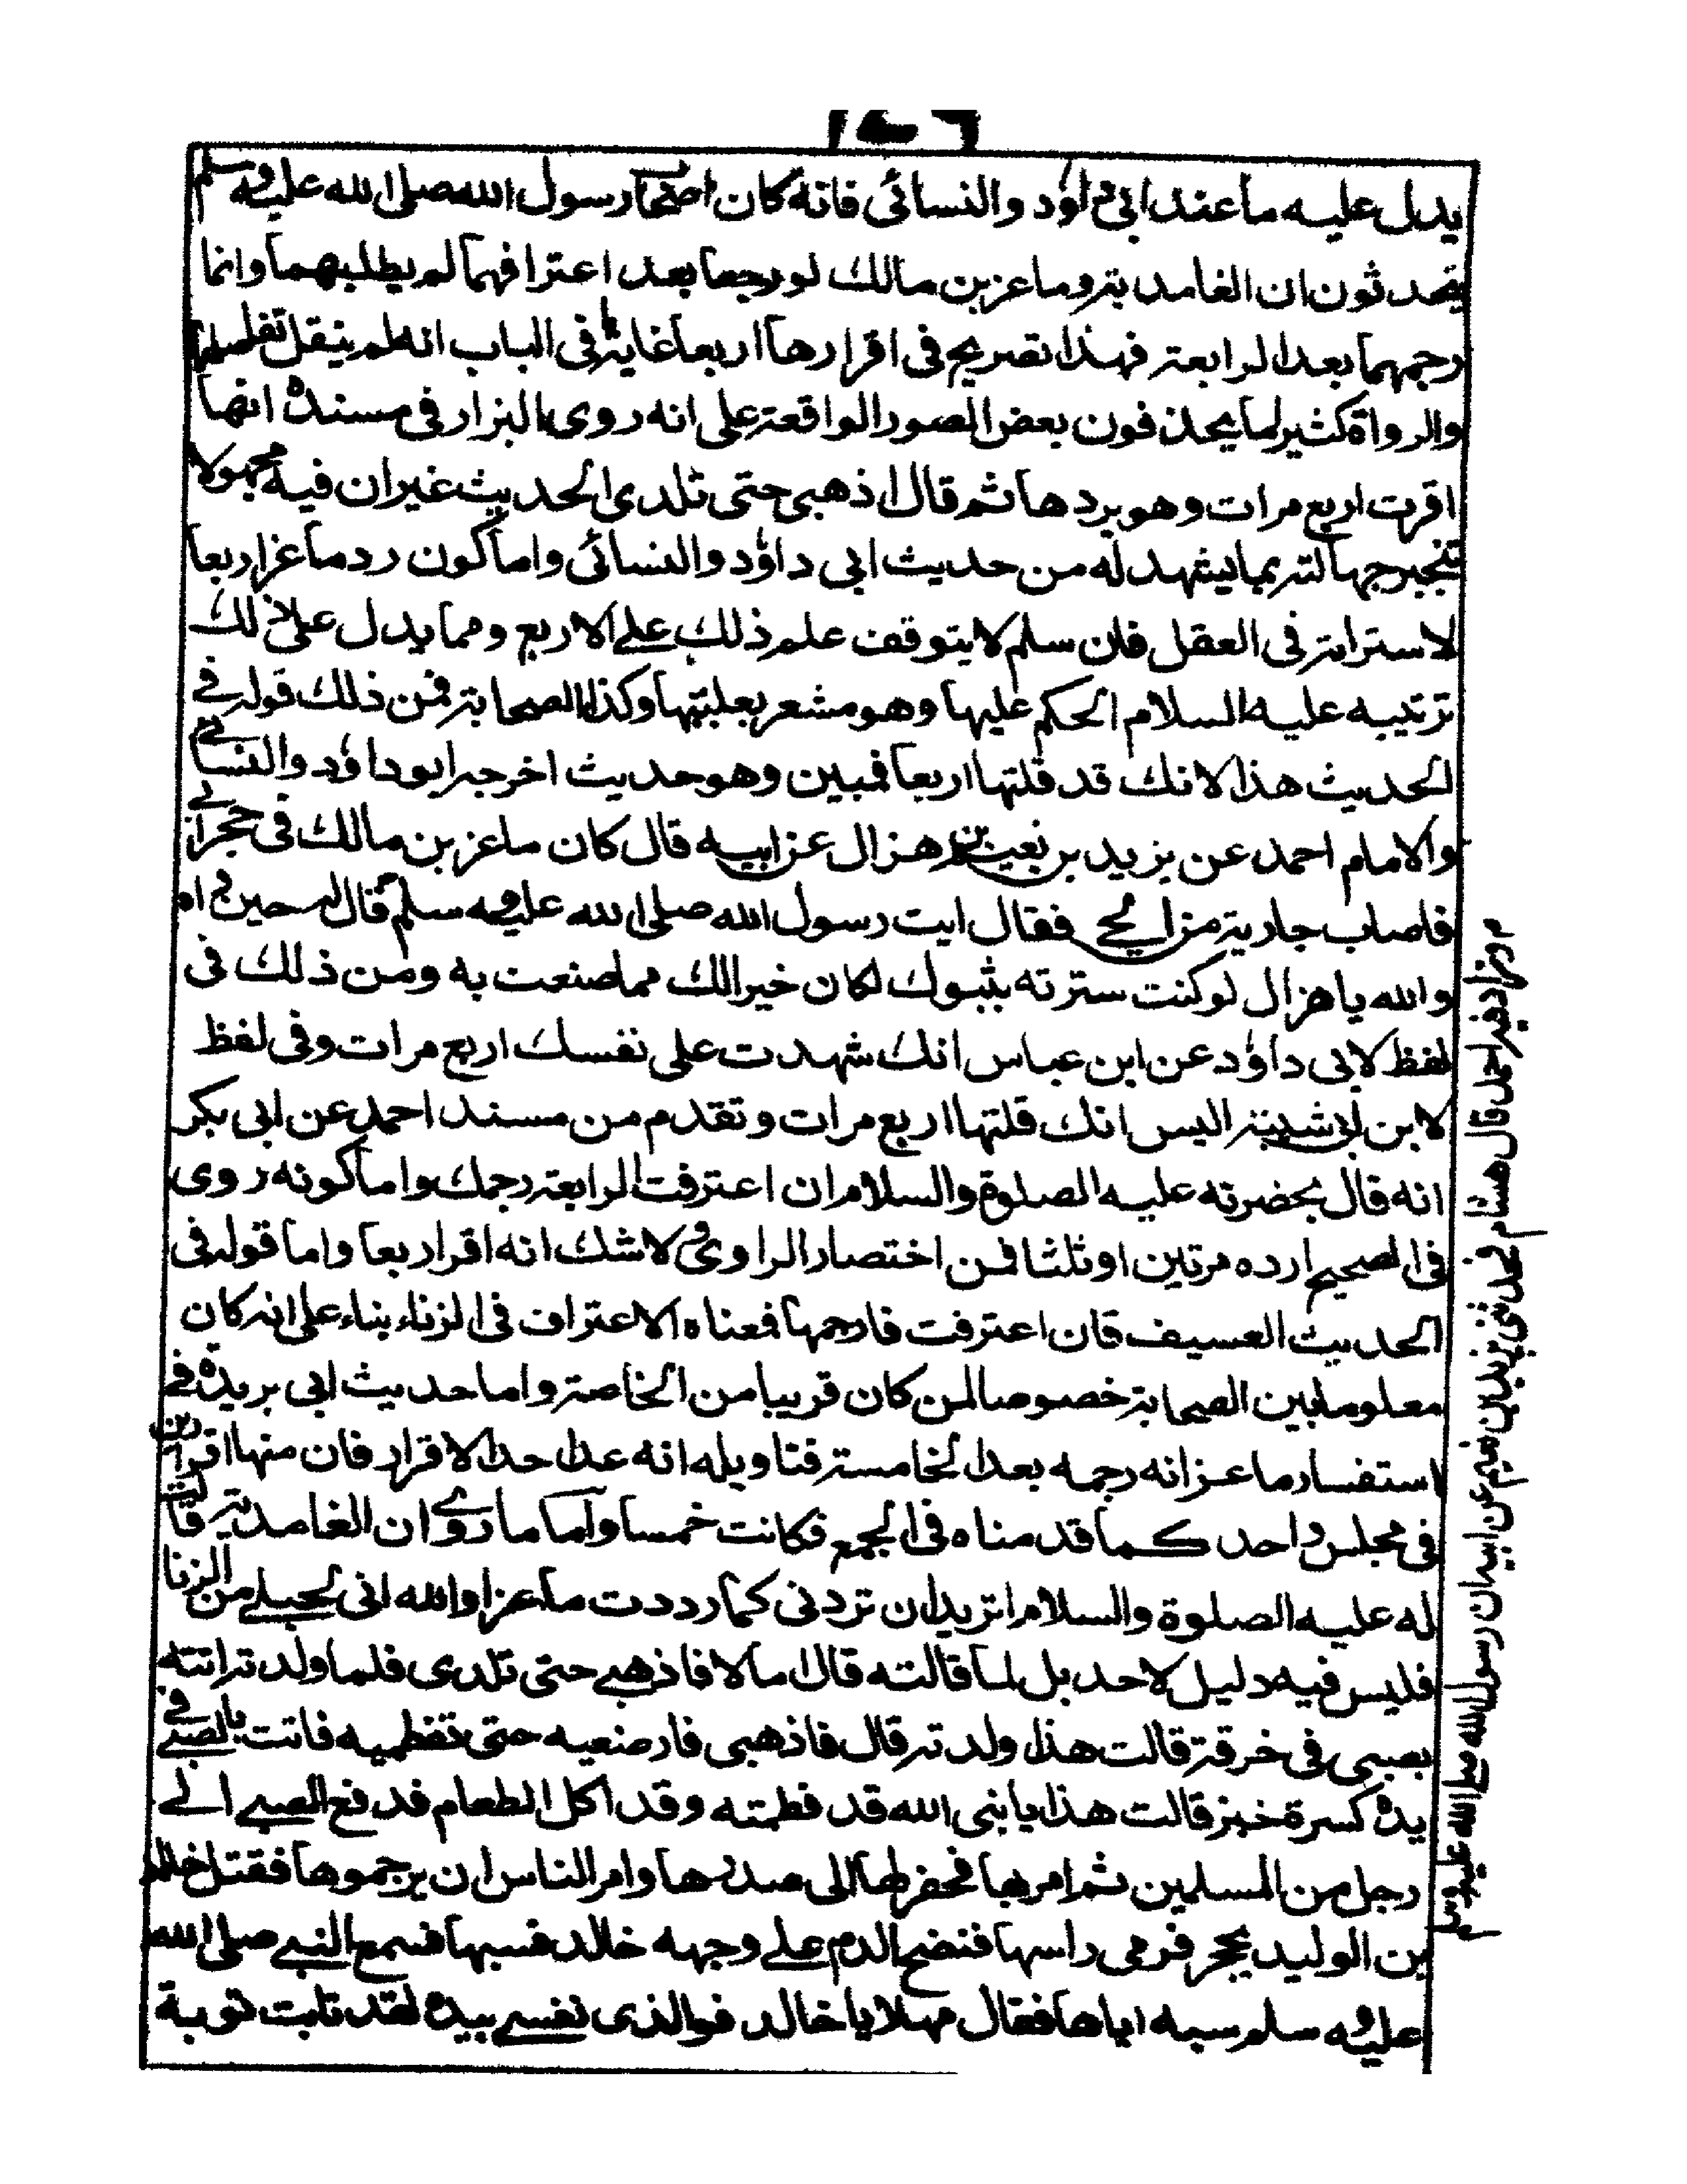 يدل عليه ما عند ابي داؤد والنسائى فانه كان اصحاب رسول الله صلى الله عليه وسلم
يتحدثون ان الغامدية وماعز بن مالك لو رجعا بعد اعترافهما لم يطلبهما وانما
رجمهما بعد الرابعة فهذا تصريح فى اقرارها اربعا غاية فى الباب انه لم ينقل تفاصيلها
والرواة كثير لما يحذفون بعض الصور الواقعة على انه روى البزار فى مسنده انها
اقرت اربع مرات وهو يردها ثم قال اذهبى حتى تلدى الحديث غير ان فيه مجهولا
تنجبر جهالته بما يشهد له من حديث ابى داؤد والنسائى واما كون رد ماعز اربعا
لاسترابته فى العقل فان سلم لا يتوقف علم ذلك على الاربع ومما يدل على ذلك
ترتيبه عليه السلام الحكم عليها وهو مشعر بعليتها وكذا الصحابة فمن ذلك قوله فى
الحديث هذا لانك قد قلتها اربعا فمبين وهو حديث اخرجه ابو داؤد والنسائى
والامام احمد عن يزيد بن نعيم بن هزال عن ابيه قال كان ماعز بن مالك فى حجر ابى
فاصاب جارية من الحى فقال ايت رسول الله صلى الله عليه وسلم قال له حين
والله يا هزال لو كنت سترته بثبوك لكان خيرا لك مما صنعت به ومن ذلك فى
لفظ لابى داؤد عن ابن عباس انك شهدت على نفسك اربع مرات وفى لفظ
لابن ابى شيبة اليس انك قلتها اربع مرات وتقدم من مسند احمد عن ابى بكر
انه قال بحضرته عليه الصلوة والسلام ان اعترفت الرابعة رجمك واما كونه روى
فى الصحيح رده مرتين او ثلثا فمن اختصار الراوى ولا شك انه اقر اربعا واما قوله فى
الحديث العسيف فان اعترفت فارجمها فمعناه الاعتراف فى الزناء بناء على انه كان
معلوما بين الصحابة خصوصا لمن كان قريبا من الخاصة واما حديث ابى بريدة فى
استفسار ماعز انه رجمه بعد الخامسة فتاويله انه عد احد الاقرار فان منها اقرارين
فى مجلس واحد كما قدمناه فى الجمع فكانت خمسا واما ما روى ان الغامدية قالت
له عليه الصلوة والسلام اتريد ان تردنى كما رددت ماعزا والله انى لحبلى من الزنا
فليس فيه دليل لاحد بل لما قالته قال اما لا فاذهبى حتى تلدى فلما ولدت اتته
بصبى فى خرقة قالت هذا ولدته قال فاذهبى فارضعيه حتى تفطميه فاتت بالصبى فى
يده كسرة خبز قالت هذا يا نبى الله قد فطمته وقد اكل الطعام فدفع الصبى الى
رجل من المسلمين ثم امر بها فحفر لها الى صدرها وامر الناس ان يرجموها فقتل خالد
بن الوليد بحجر فرمى راسها فنضح الدم على وجهه خالد فسبها فسمع النبى صلى الله
عليه وسلم سبه اياها فقال مهلا يا خالد فوالذى نفسى بيده لقد تابت توبة
وزاد فيه احمد قال هشام فحدثنى يزيد بن نعيم عن ابيه ان رسول الله صلى الله عليه وسلم